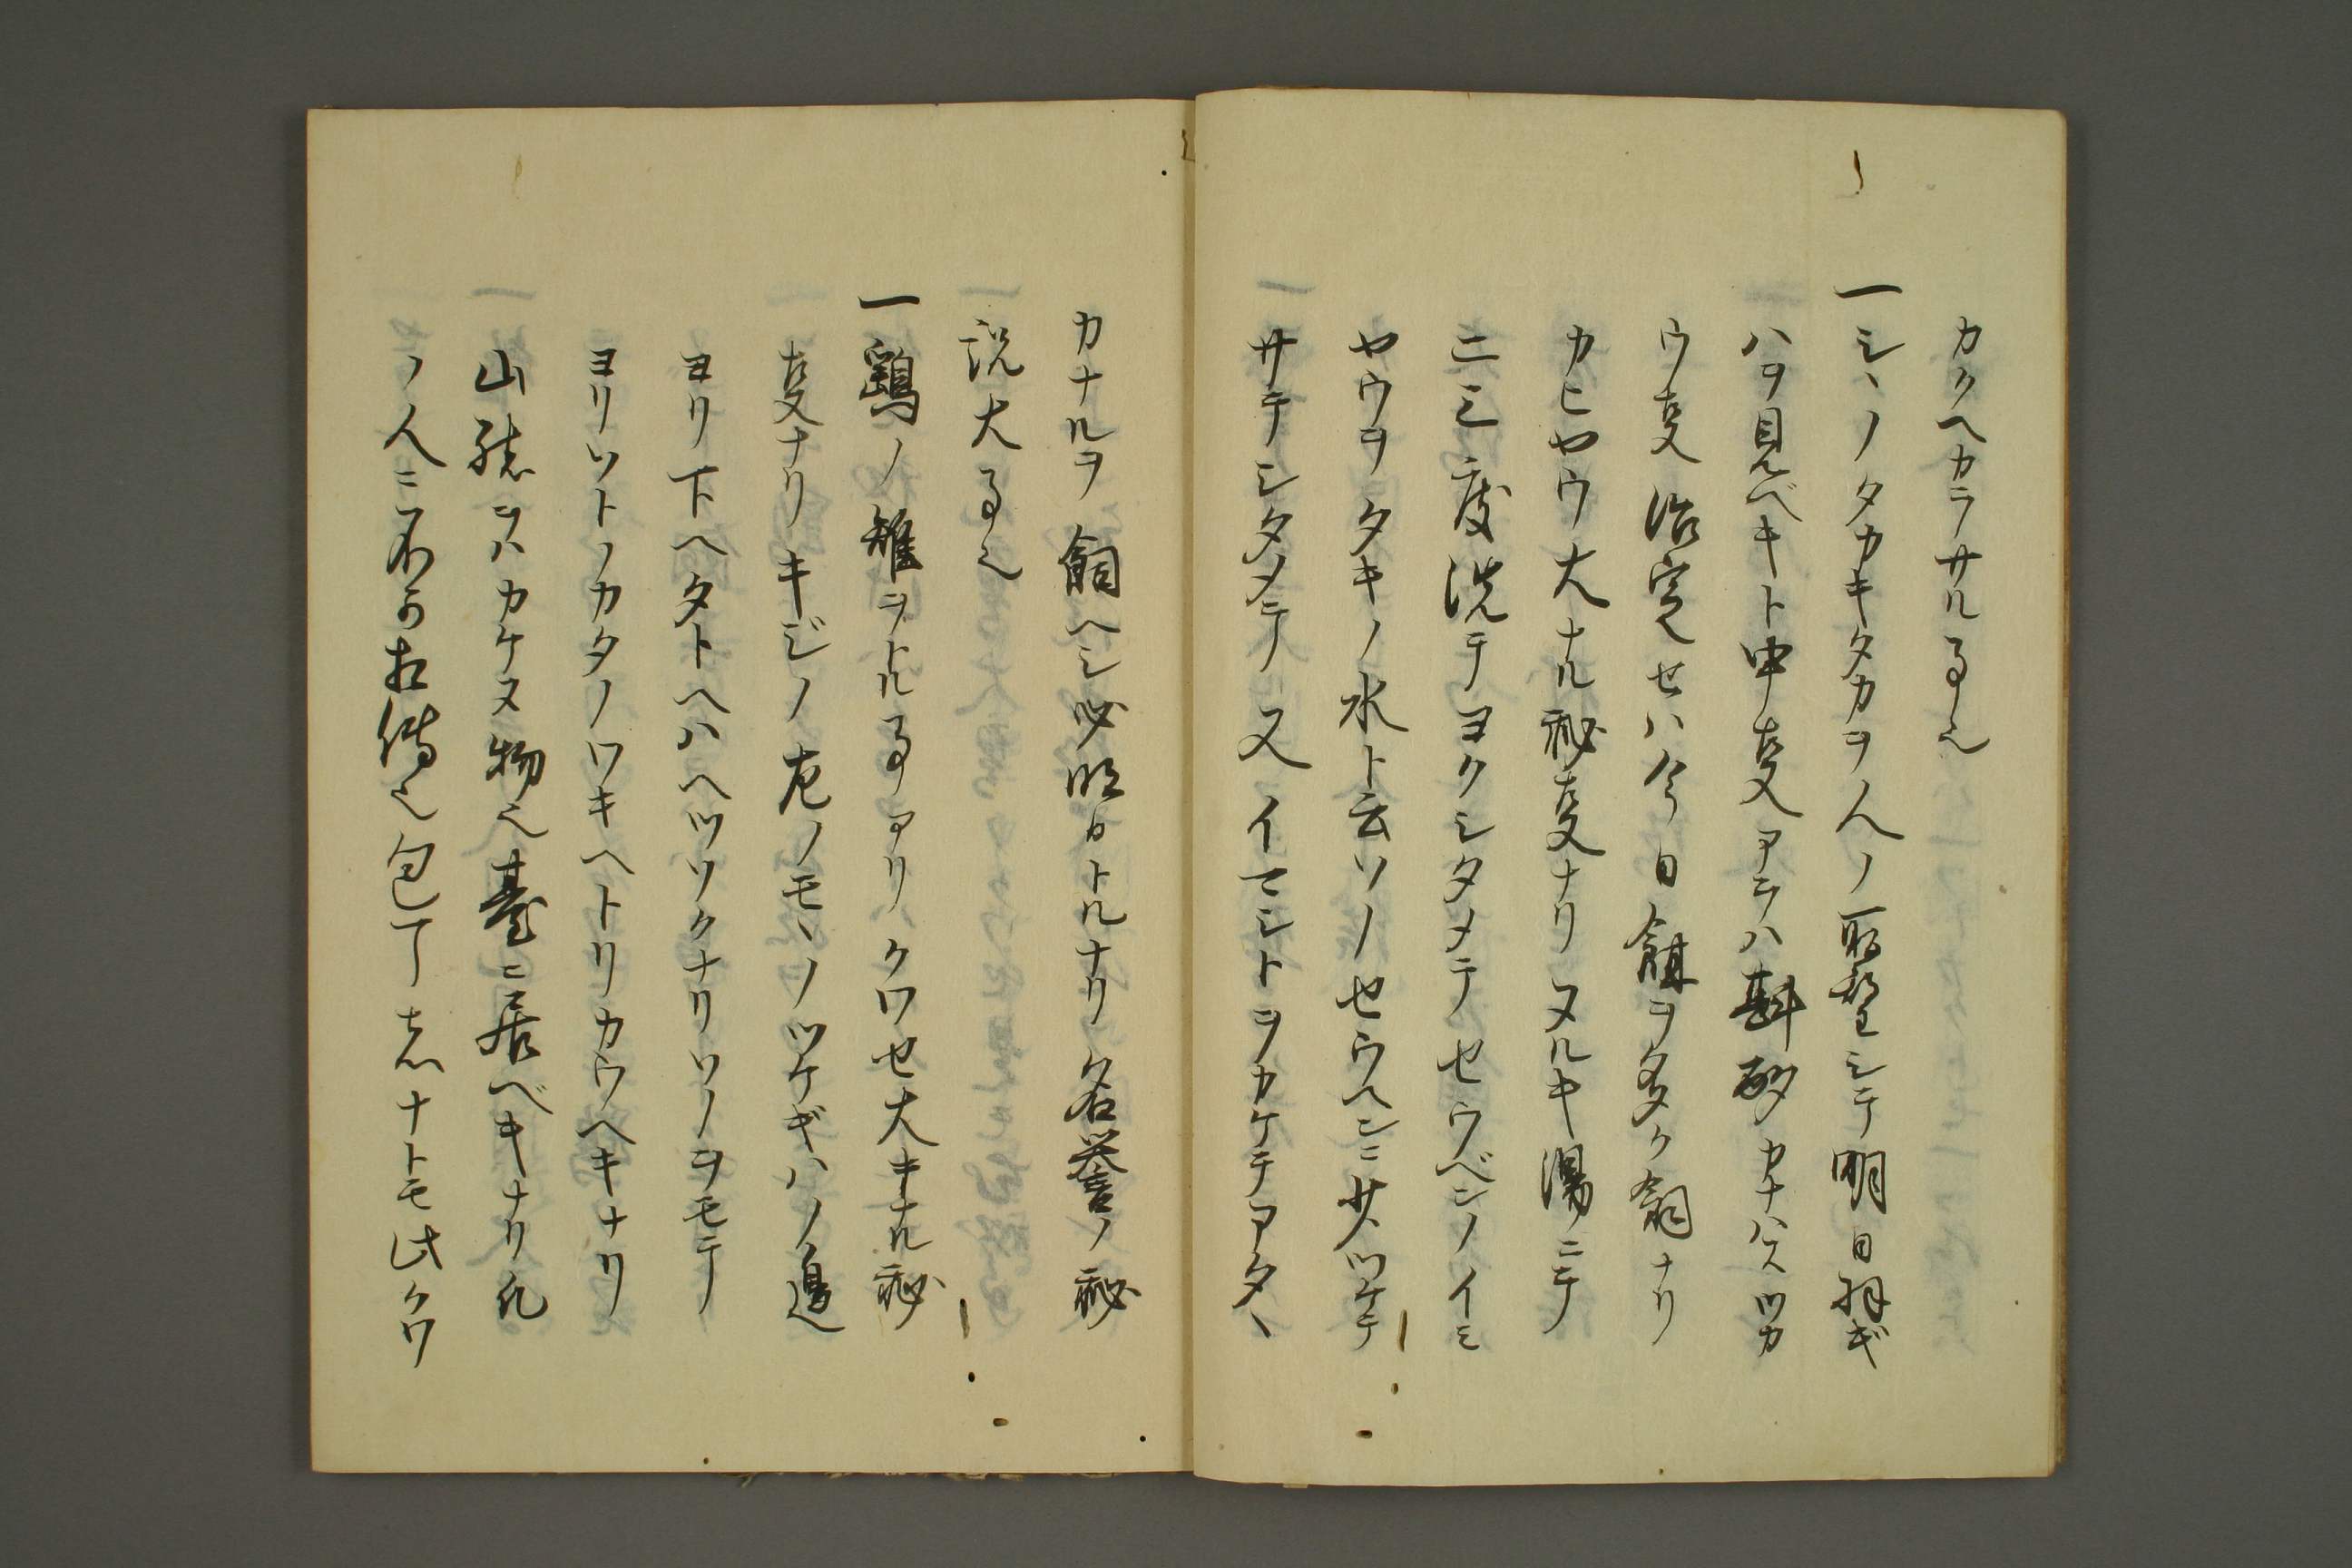 カクヘカラサル事也
一シヽノタカキタカヲ人ノ所望シテ明日羽ギ
ハヲ見ベキト申支アラハ斟酌カナハスツカ
ウ支治定せハ今日餌ヲ多ク飼ナリ
カヒヤウ大ナル秘支ナリヌルキ湯ニテ
二三度洗テヨクシタメテせウベンノイミ
ヤウヲタキノ水ト云ソノせウヘンニ廿ツケテ
サテシタメテ又イマシトヲカケテアタヽ
カナルヲ飼ヘシ必明日トルナリ名誉ノ秘
説大事也
一鷂ノ雉ヲトル事アリクワせ大キナル秘
支ナリキジノ左ノモヽノツケギハノ邊
ヨリ下ヘタトヘハヘツソクナリソノヲモテ
ヨリソトノカタノワキヘトリカウヘキナリ
山緒ヲハカケヌ物也臺ニ居ベキナリ凡
ノ人ニ不可相傳也包丁志ナトモ此クワ